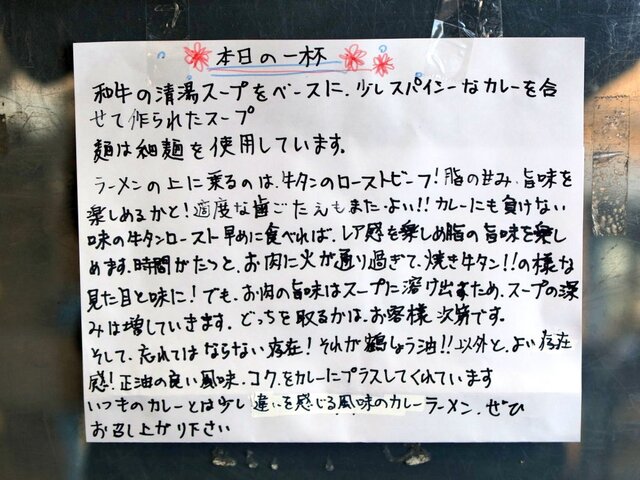 本日の一杯
和牛の清湯スープをベースに、少しスパイシーなカレーを合
せて作られたスープ
麺は細麺を使用しています。
ラーメンの上に乗るのは、牛タンのローストビーフ!脂の甘み、旨味を
楽しめるかと!適度な歯ごたえもまた、よい!!カレーにも負けない
味の牛タンロースト早めに食べれば、レア感を楽しめ脂の旨味を楽し
めます。時間がたつと、お肉に火が通り過ぎて、焼き牛タン!!の様な
見た目と味に!でも、お肉の旨味はスープに溶け出すため、スープの深
みは増していきます。どっちを取るかは、お客様次第です。
そして、忘れてはならない存在!それが鶴しょう油!!以外と、よい存在
感!正油の良い風味、コク、をカレーにプラスしてくれています
いつものカレーとは少し違いを感じる風味のカレーラーメン、ぜひ
お召し上がり下さい